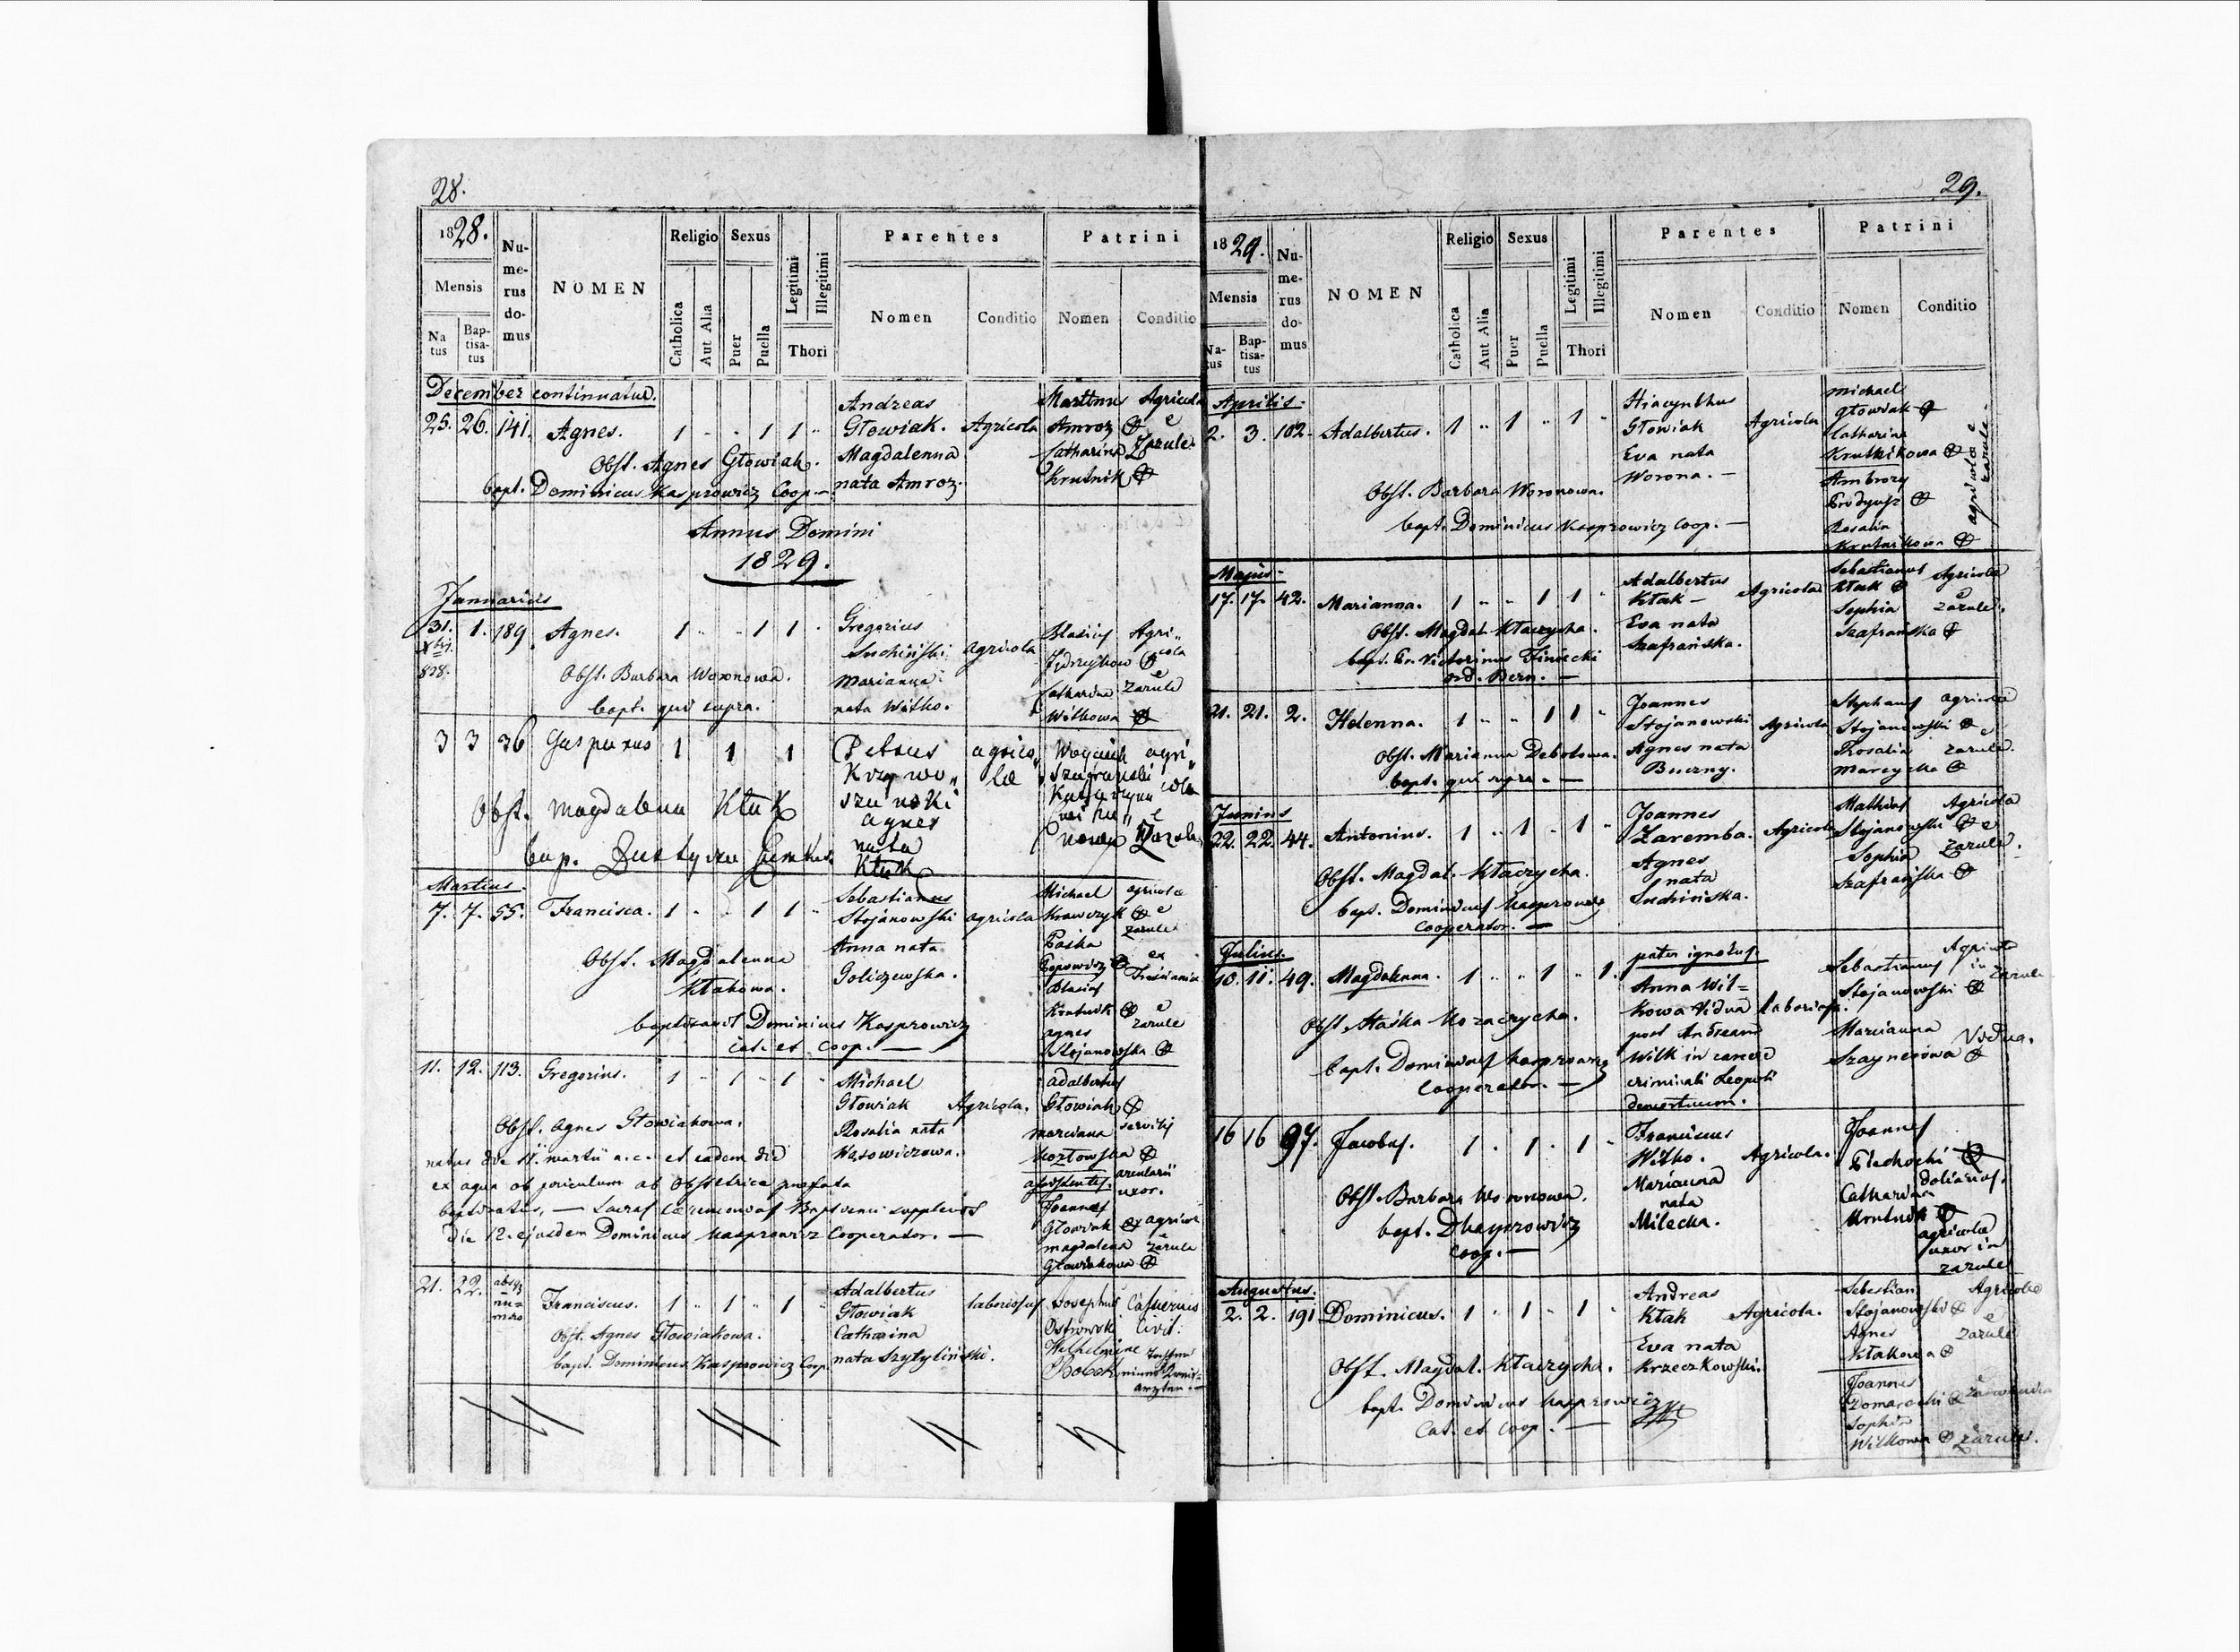 28.
1828.
Mensis
Na tus
Bap- tisa- tus
Nu- me- rus do- mus
NOMEN
Religio
Catholica
Aut Alia
Sexus
Puer
Puella
Legitimi
Illegitimi
Thori
Parentes
Nomen
Conditio
Patrini
Nomen
Conditio
December continuatur.
25. 26. 141. Agnes. 1 " " 1 1 "
Andreas
Głowiak. Agricola
Magdalenna
nata Amroz.
Martinus Agricola
Amroz e
Catharina Zarule
Krutnik
Obst. Agnes Głowiak.
bapt. Dominicus Kasprowicz Coop.
Annus Domini
1829.
Januarius
31. 1. 189. Agnes. 1 " " 1 1 "
828.
Gregorius
Suchiński agricola
Marianna
nata Witko.
Blasius Agri"
cola
Catharina Zarule
Witkowa
Obst. Barbara Woronowa.
bapt. qui supra.
3 3 36 Gasparus 1 1 1
Petrus agrico"
la
agnes
nata
Kłak
Obst. Magdalena Kłak
Martius
7. 7. 55. Francisca. 1 " " 1 1 "
Sebastianus
Stojanowski agricola
Anna nata
Goliczewska.
Michael agricola
Krawczyk e
zarule
Blasius
Krutnik e
agnes zarule
Stojanowska
Obst. Magdalenna
Kłakowa.
baptisavit Dominicus Kasprowicz
Cat. et Coop.
11. 12. 113. Gregorius. 1 " 1 " 1 "
Michael
Głowiak Agricola.
Rosalia nata
Wąsowiczowa.
Adalbertus
Głowiak
Marianna
Kozłowska
assistentes.
uxor.
Joannes
Głowiak agricola
magdalena zarule
Głowiakowa
Obst. Agnes Głowiakowa.
natus die 11. martii a.c. et eadem die
ex aqua ob periculum ab Obstetrice praefata
baptisatus,
die 12. ejusdem Dominicus Kasprowicz Cooperator.
21. 22. absq nu= mero Franciscus. 1 " 1 " 1 "
Adalbertus
Głowiak laboriosus
Catharina
nata Szytyliński.
Josephus
Ostrowski Civil.
Wilhelmine
Obst. Agnes Głowiakowa.
bapt. Dominicus Kasprowicz Coop.
29.
1829.
Mensis
Na- tus
Bap- tisa- tus
Nu- me- rus do- mus
NOMEN
Religio
Catholica
Aut Alia
Sexus
Puer
Puella
Legitimi
Illegitimi
Thori
Parentes
Nomen
Conditio
Patrini
Nomen
Conditio
Aprilis
2. 3. 102. Adalbertus. 1 " 1 " 1 "
Hiacynthus
Głowiak Agricola
Eva nata
Worona.
Michael
Głowiak
Catharina
Krutnikowa
Ambrozy
Rosalia
Krutnikowa
agricolae e zarule
Obst. Barbara Woronowa.
bapt. Dominicus Kasprowicz Coop.
Majus
17. 17. 42. Marianna. 1 " " 1 1 "
Adalbertus
Kłak Agricola
Eva nata
Szafrańska.
Sebastianus
Kłak Agricola
Sophia e zarule.
Szafrańska
Obst. Magdal. Kłaczycha.
bapt. Fr. Victorinus
ord. Bern.
21. 21. 2. Helenna. 1 " " 1 1 "
Joannes
Stojanowski Agricola
Agnes nata
Buczny.
Stephanus agricola
Stojanowski e
Rosalia zarule.
Obst. Marianna Debolowa.
bapt. qui supra.
Junius
22. 22. 44. Antonius. 1 " 1 " 1 "
Joannes
Zaremba. Agricola
Agnes
nata
Suchińska.
Mathias Agricola
Stojanowski e
Sophia Zarule.
Szafrańska
Obst. Magdal. Kłaczycha.
bapt. Dominicus Kasprowicz
Cooperator.
Julius.
10. 11. 49. Magdalenna. 1 " " 1 " 1.
pater ignotus.
Anna Wil=
kowa Vidua laboriosa.
post Andream
Wilk in carcere
criminali Leopoli
demortuum.
Sebastianus Agricola
Stojanowski in Zarule
Marianna Vidua.
Szaynerowa
Obst. Maśka Kozaczycha.
bapt. Dominicus Kasprowicz
Cooperator.
16 16 97. Jacobus. 1 " 1 " 1 "
Franciscus
Witko. Agricola.
Marianna
nata
Milecka.
Joannes
Catharina doliarius.
Krutnik
agricolae
uxor in
zarule
Obst. Barbara Woronowa.
bapt. D Kasprowicz
Coop.
Augustus.
2. 2. 191 Dominicus. 1 " 1 " 1 "
Andreas
Kłak Agricola.
Eva nata
Krzeczkowska.
Sebastian Agricola
Stojanowski e
Agnes zarule
Kłakowa
Joannes
Domarecki
Sophia
Witkowa e zarule.
Obst. Magdal. Kłaczycha.
bapt. Dominicus Kasprowicz
Cat. et Coop.